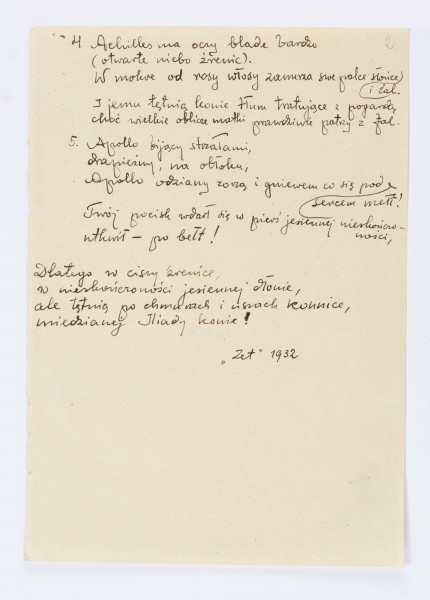 2.
4 Achilles ma oczy blade bardzo
(otwarte niebo źrenic).
W mokre od rosy włosy zanurza swe palce słońce
i żal.
I jemu tętnią konie tłum tratujące z pogardą,
choć wielkie oblicze matki prawdziwie patrzy z fal.
5. Apollo bijący strzałami,
drapieżny, na obłoku,
Apollo odziany zorzą i gniewem co się pod
sercem mełł!
Twój pocisk wdarł się w pierś jesiennej nieskończo-
ności,
utkwił – po bełt!
Dlatego w ciszy źrenice,
w nieskończoności jesiennej dłonie,
ale tętnią po chmurach i uszach konnice,
miedzianej Iliady konie!
„Zet" 1932